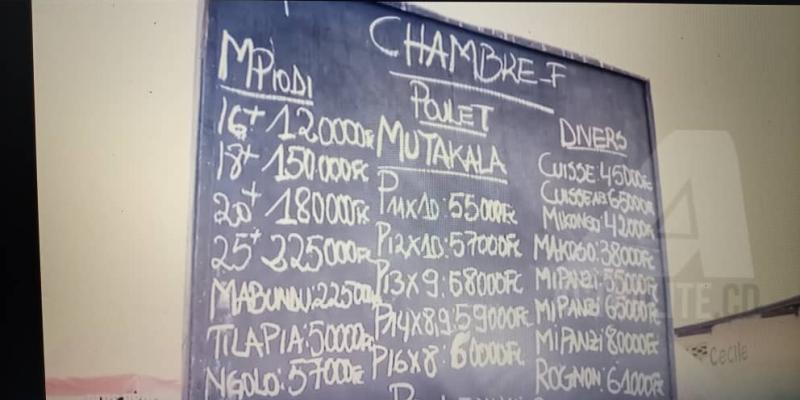 CHAMBRE-F
MPIODI
16+ 120000FC
18+ 150.000FC
20+ 180000FC
25+ 225000FC
MABUNDU:22500
TILAPIA:50000FC
NGOLO:57000FC
POULET
MUTAKALA
P11X10:55000FC
P12X10:57000FC
P13X9:58000FC
P14X8,9:59000FC
P16X8:60000FC
DIVERS
CUISSE:45000FC
65000FC
MIKONGO:42000
MAKOSO:38000FC
MIPANZI:55000FC
MIPANZI:65000FC
MIPANZI:80000FC
ROGNON:61000FC
Cecile
A
ITE.CD